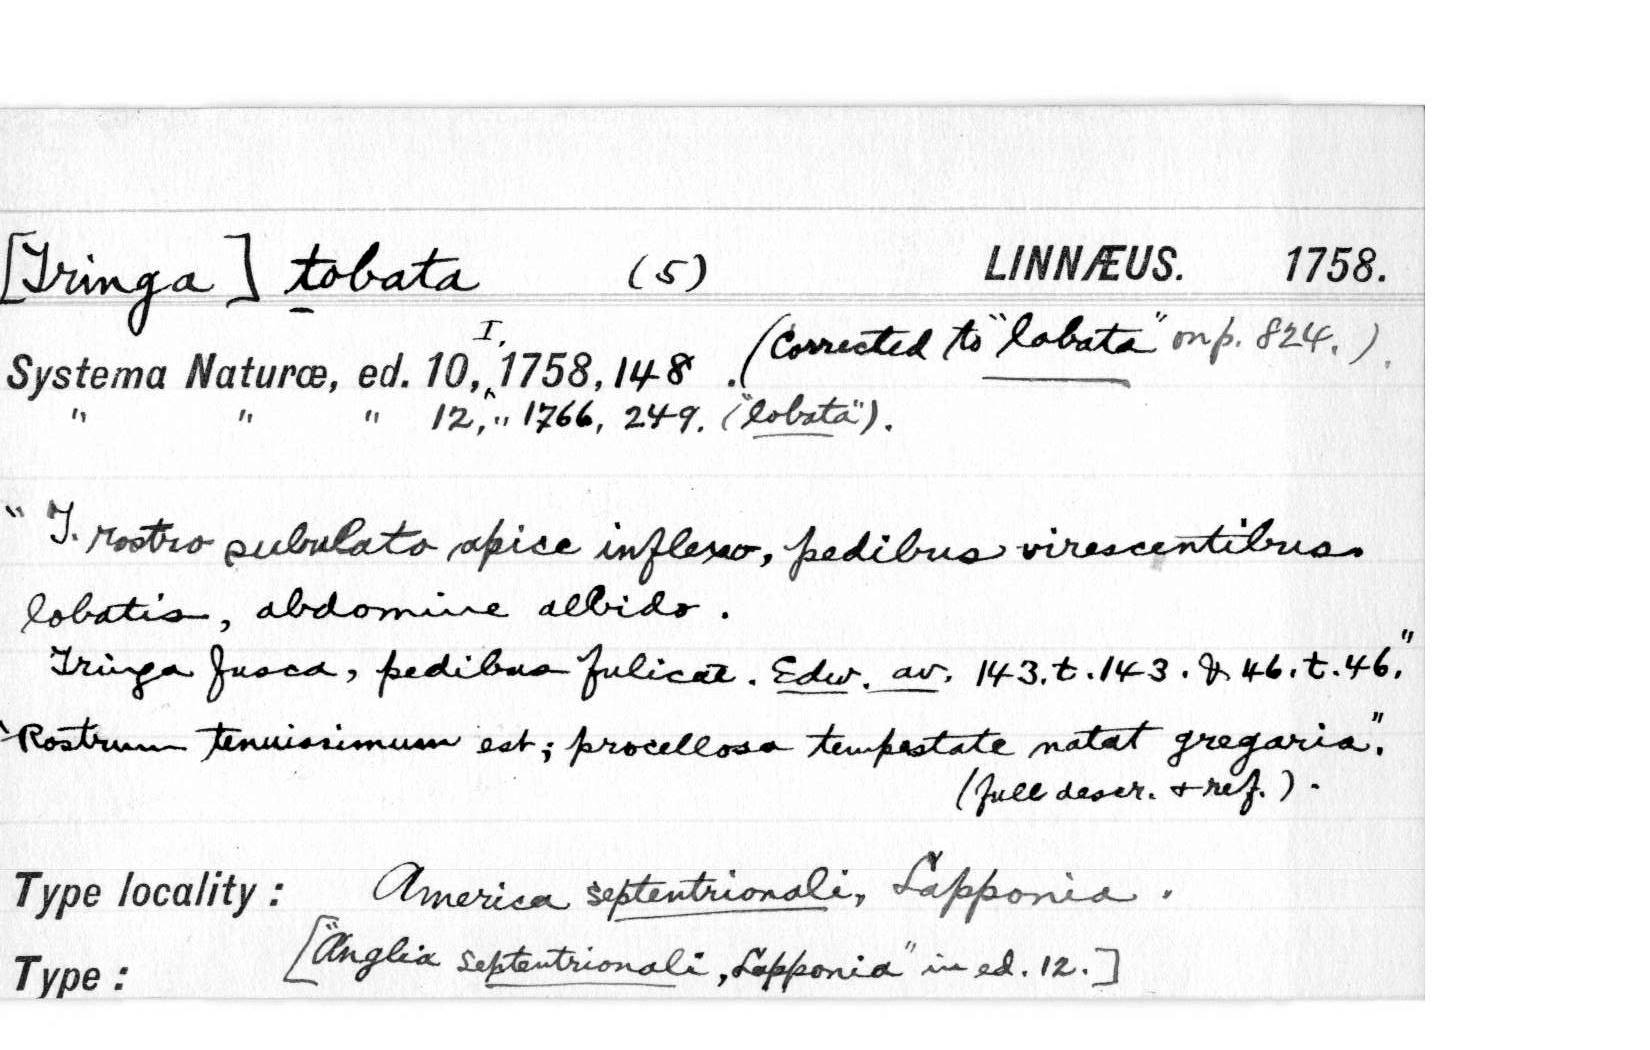 [Tringa] tobata (5) LINNÆUS. 1758.
Systema Naturæ, ed. 10, I, 1758, 148. (Corrected to "lobata" on p. 824.).
" " " 12, " 1766, 249. ("lobata").
"T. rostro subulato apice inflexo, pedibus virescentibus
lobatis, abdomine albido.
Tringa fusca, pedibus fulicae. Edw. av. 143. t. 143. & 46. t. 46."
"Rostrum tenuissimum est; procellosa tempestate natat gregaria".
(full descr. + ref.).
Type locality: America septentrionali, Lapponia.
Type: ["Anglia septentrionali, Lapponia" in ed. 12.]